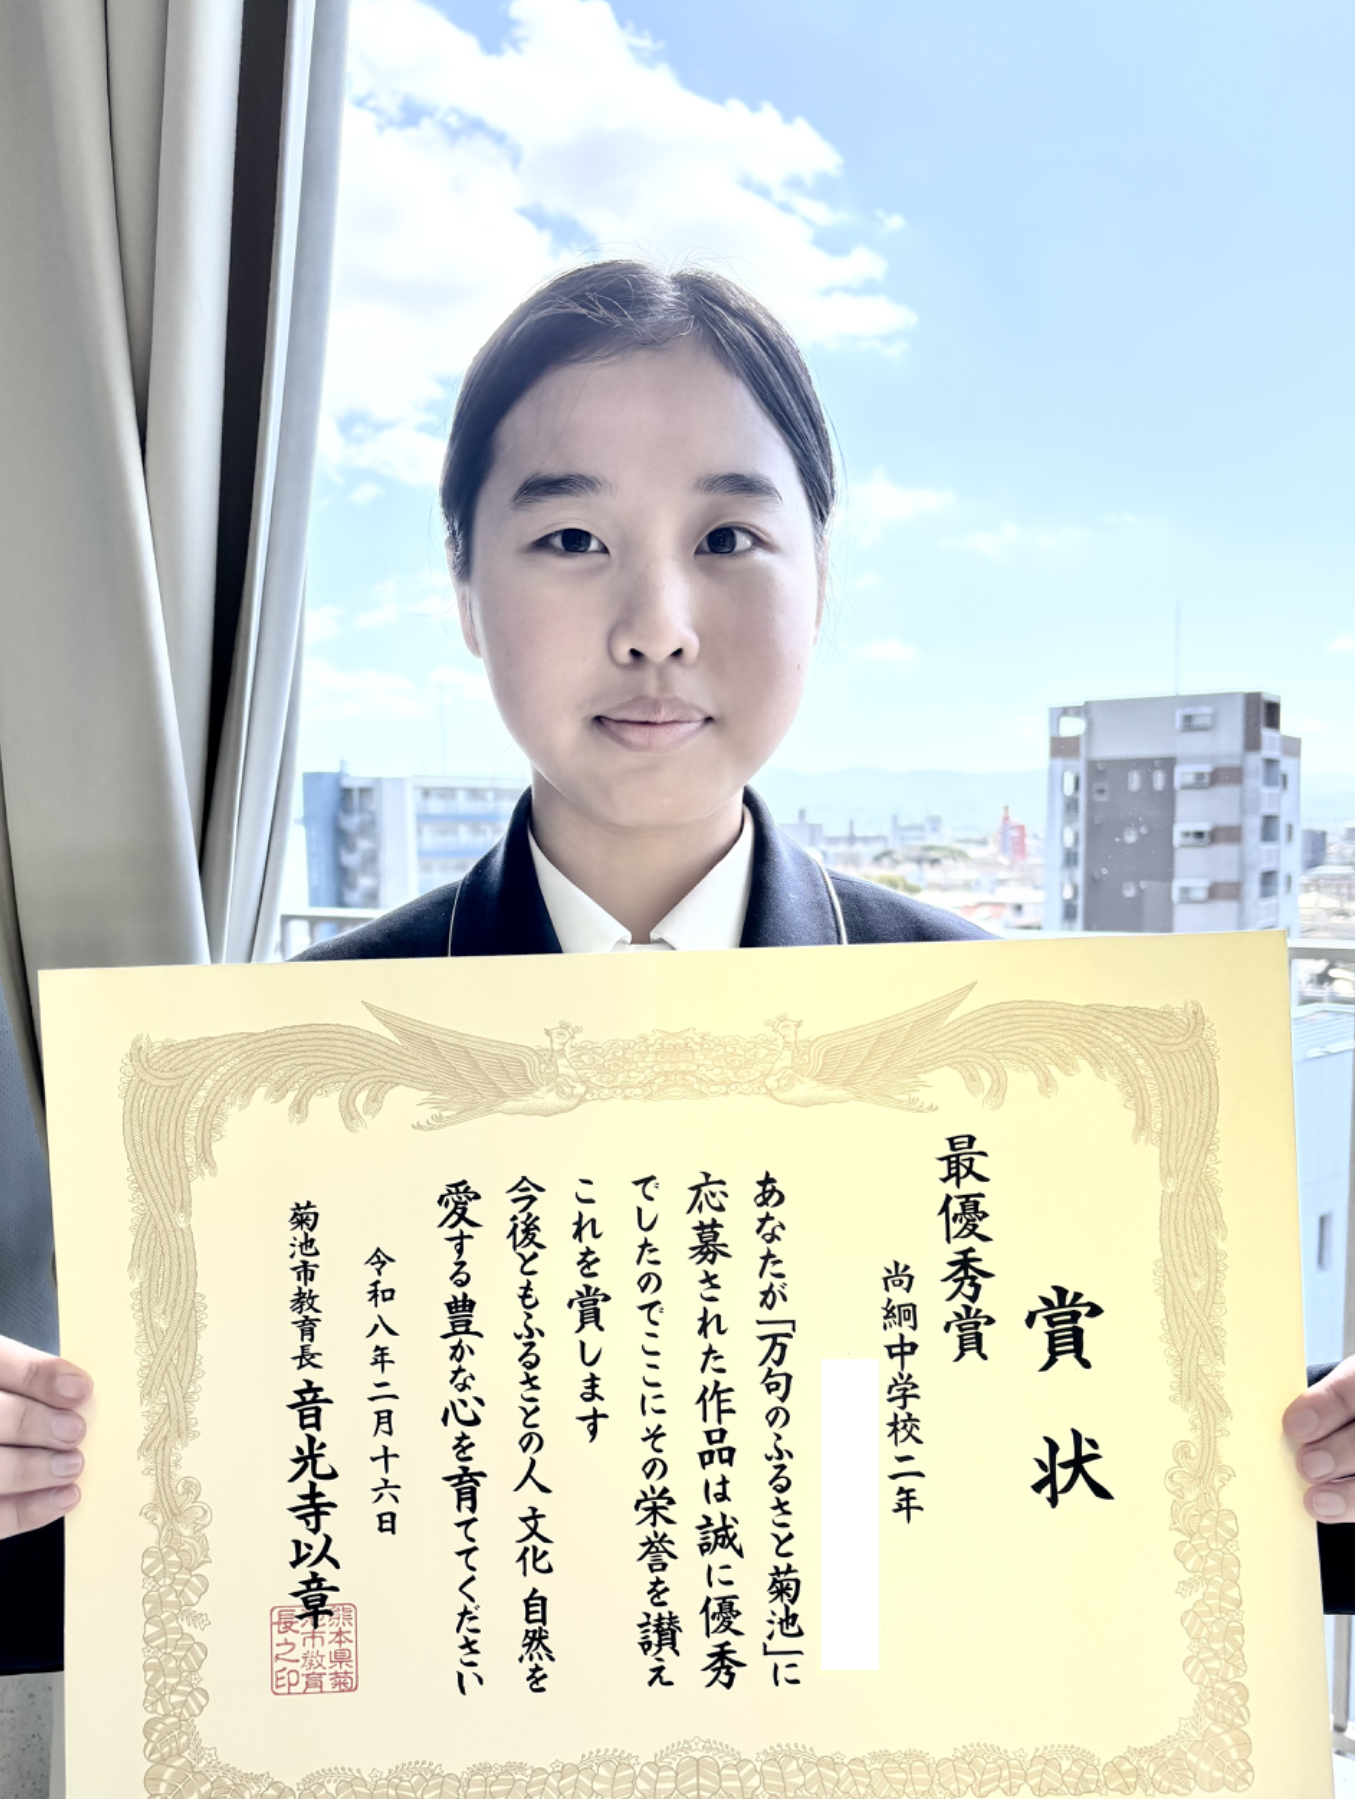 賞状
最優秀賞
尚絅中学校二年
あなたが「万句のふるさと菊池」に
応募された作品は誠に優秀
でしたのでここにその栄誉を讃え
これを賞します
今後ともふるさとの人 文化 自然を
愛する豊かな心を育ててください
令和八年二月十六日
菊池市教育長 音光寺以章
熊本県菊
池市教育
長之印